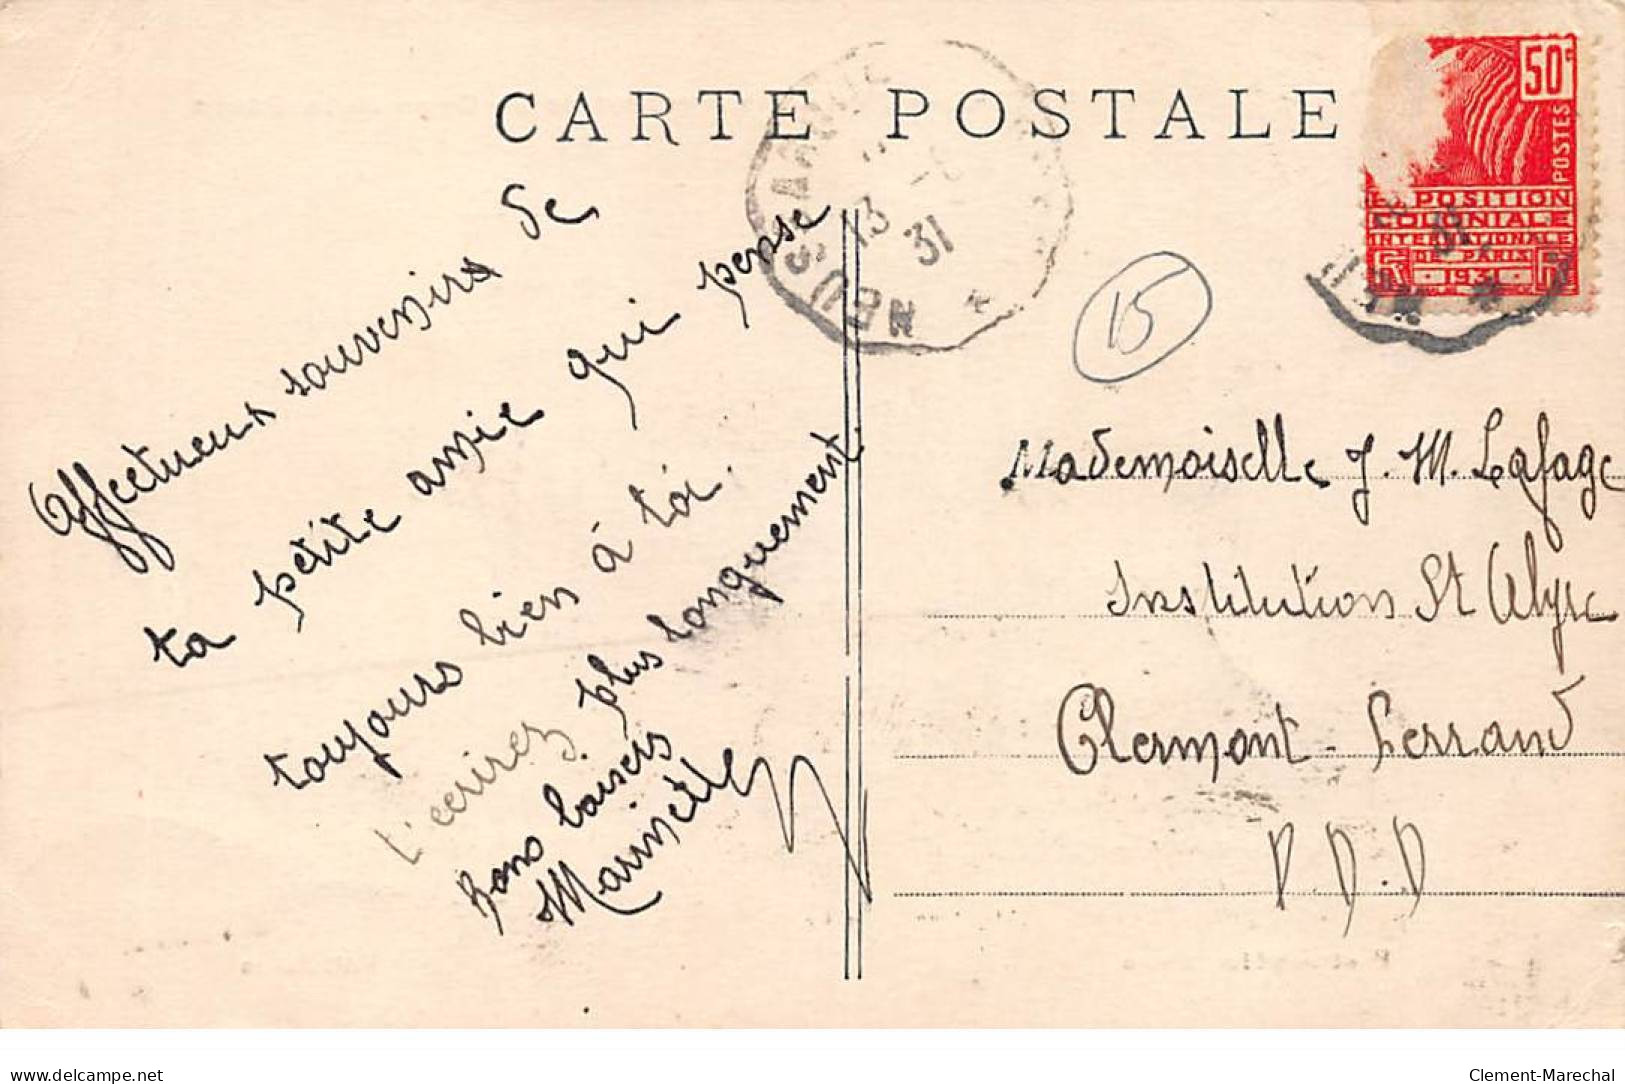 CARTE POSTALE
Affectueux souvenirs de
ta petite amie qui pense
toujours bien à toi.
t'ecrirez plus longuement.
Bons baisers
Mainette
NEUSSARGUES
13
31
15
50c
POSTES
EXPOSITION
COLONIALE
INTERNATIONALE
DE PARIS
1931
31
NEU
Mademoiselle J. M. Lafage
Institution St Alyre
Clermont-Ferrand
P. D. D
delcampe.net
Clement-Marechal